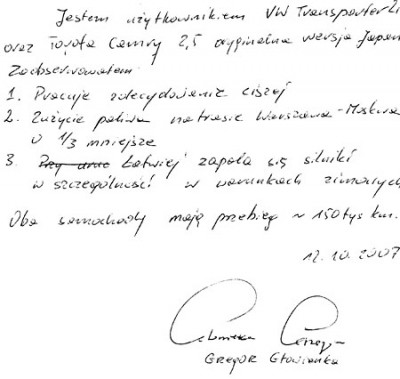 Jestem użytkownikiem VW Transporter
oraz Toyota Camry 2,5 oryginalna wersja Japan
Zaobserwowałem
1. Pracuje zdecydowanie ciszej
2. Zużycie paliwa na trasie Warszawa - Moskwa
o 1/3 mniejsze
3. Przy Łatwiej zapala się silniki
w szczególność w warunkach zimowych
Oba samochody mają przebieg ~ 150 tys km.
12.10.2007
GREGOR Głowienka